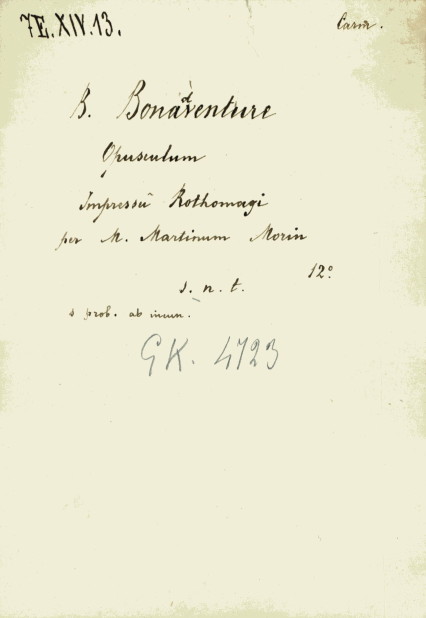 7E. XIV. 13.
Carm.
B. Bonadventure
Opusculum
Impressū Rothomagi
per M. Martinum Morin
12º
s. n. t.
s prob. ab incun.
GK. 4723